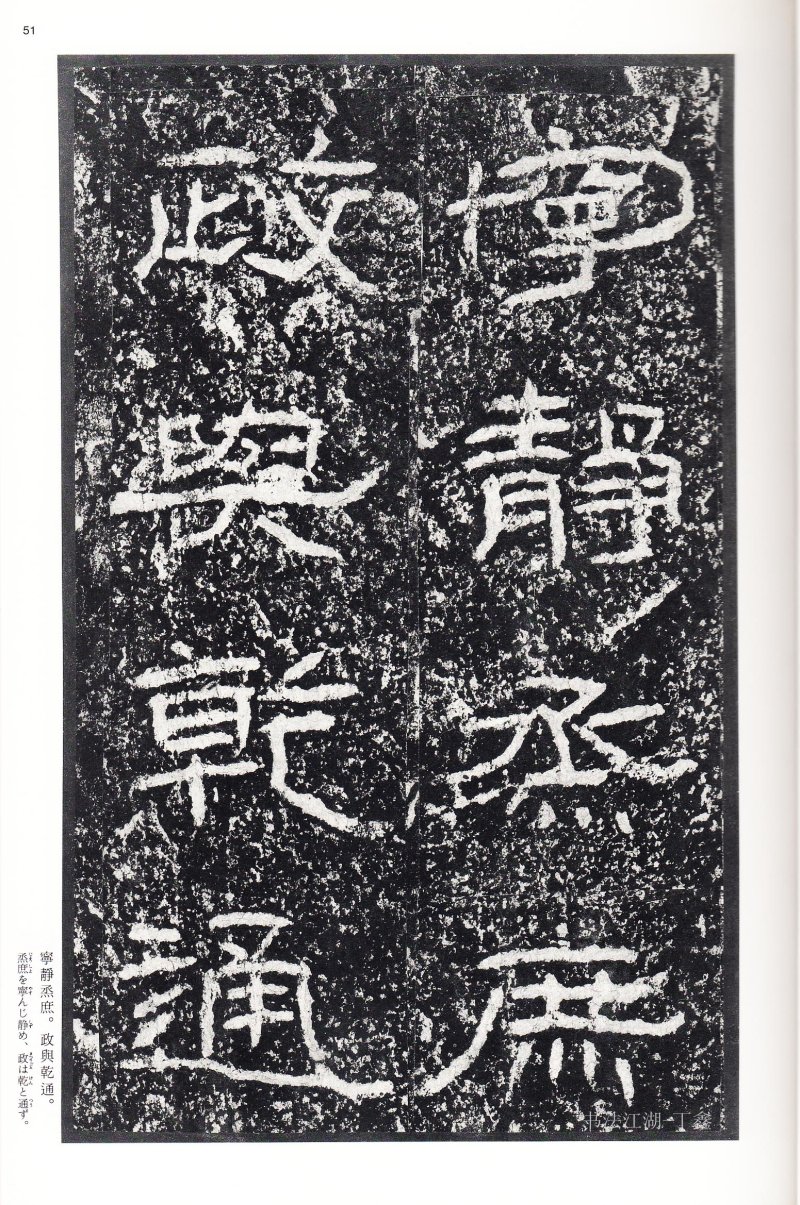 51
寧靜烝庶
政與乾通
寧靜烝庶。政與乾通。
烝庶を寧んじ静め、政は乾と通ず。
书法江湖-丁鑫